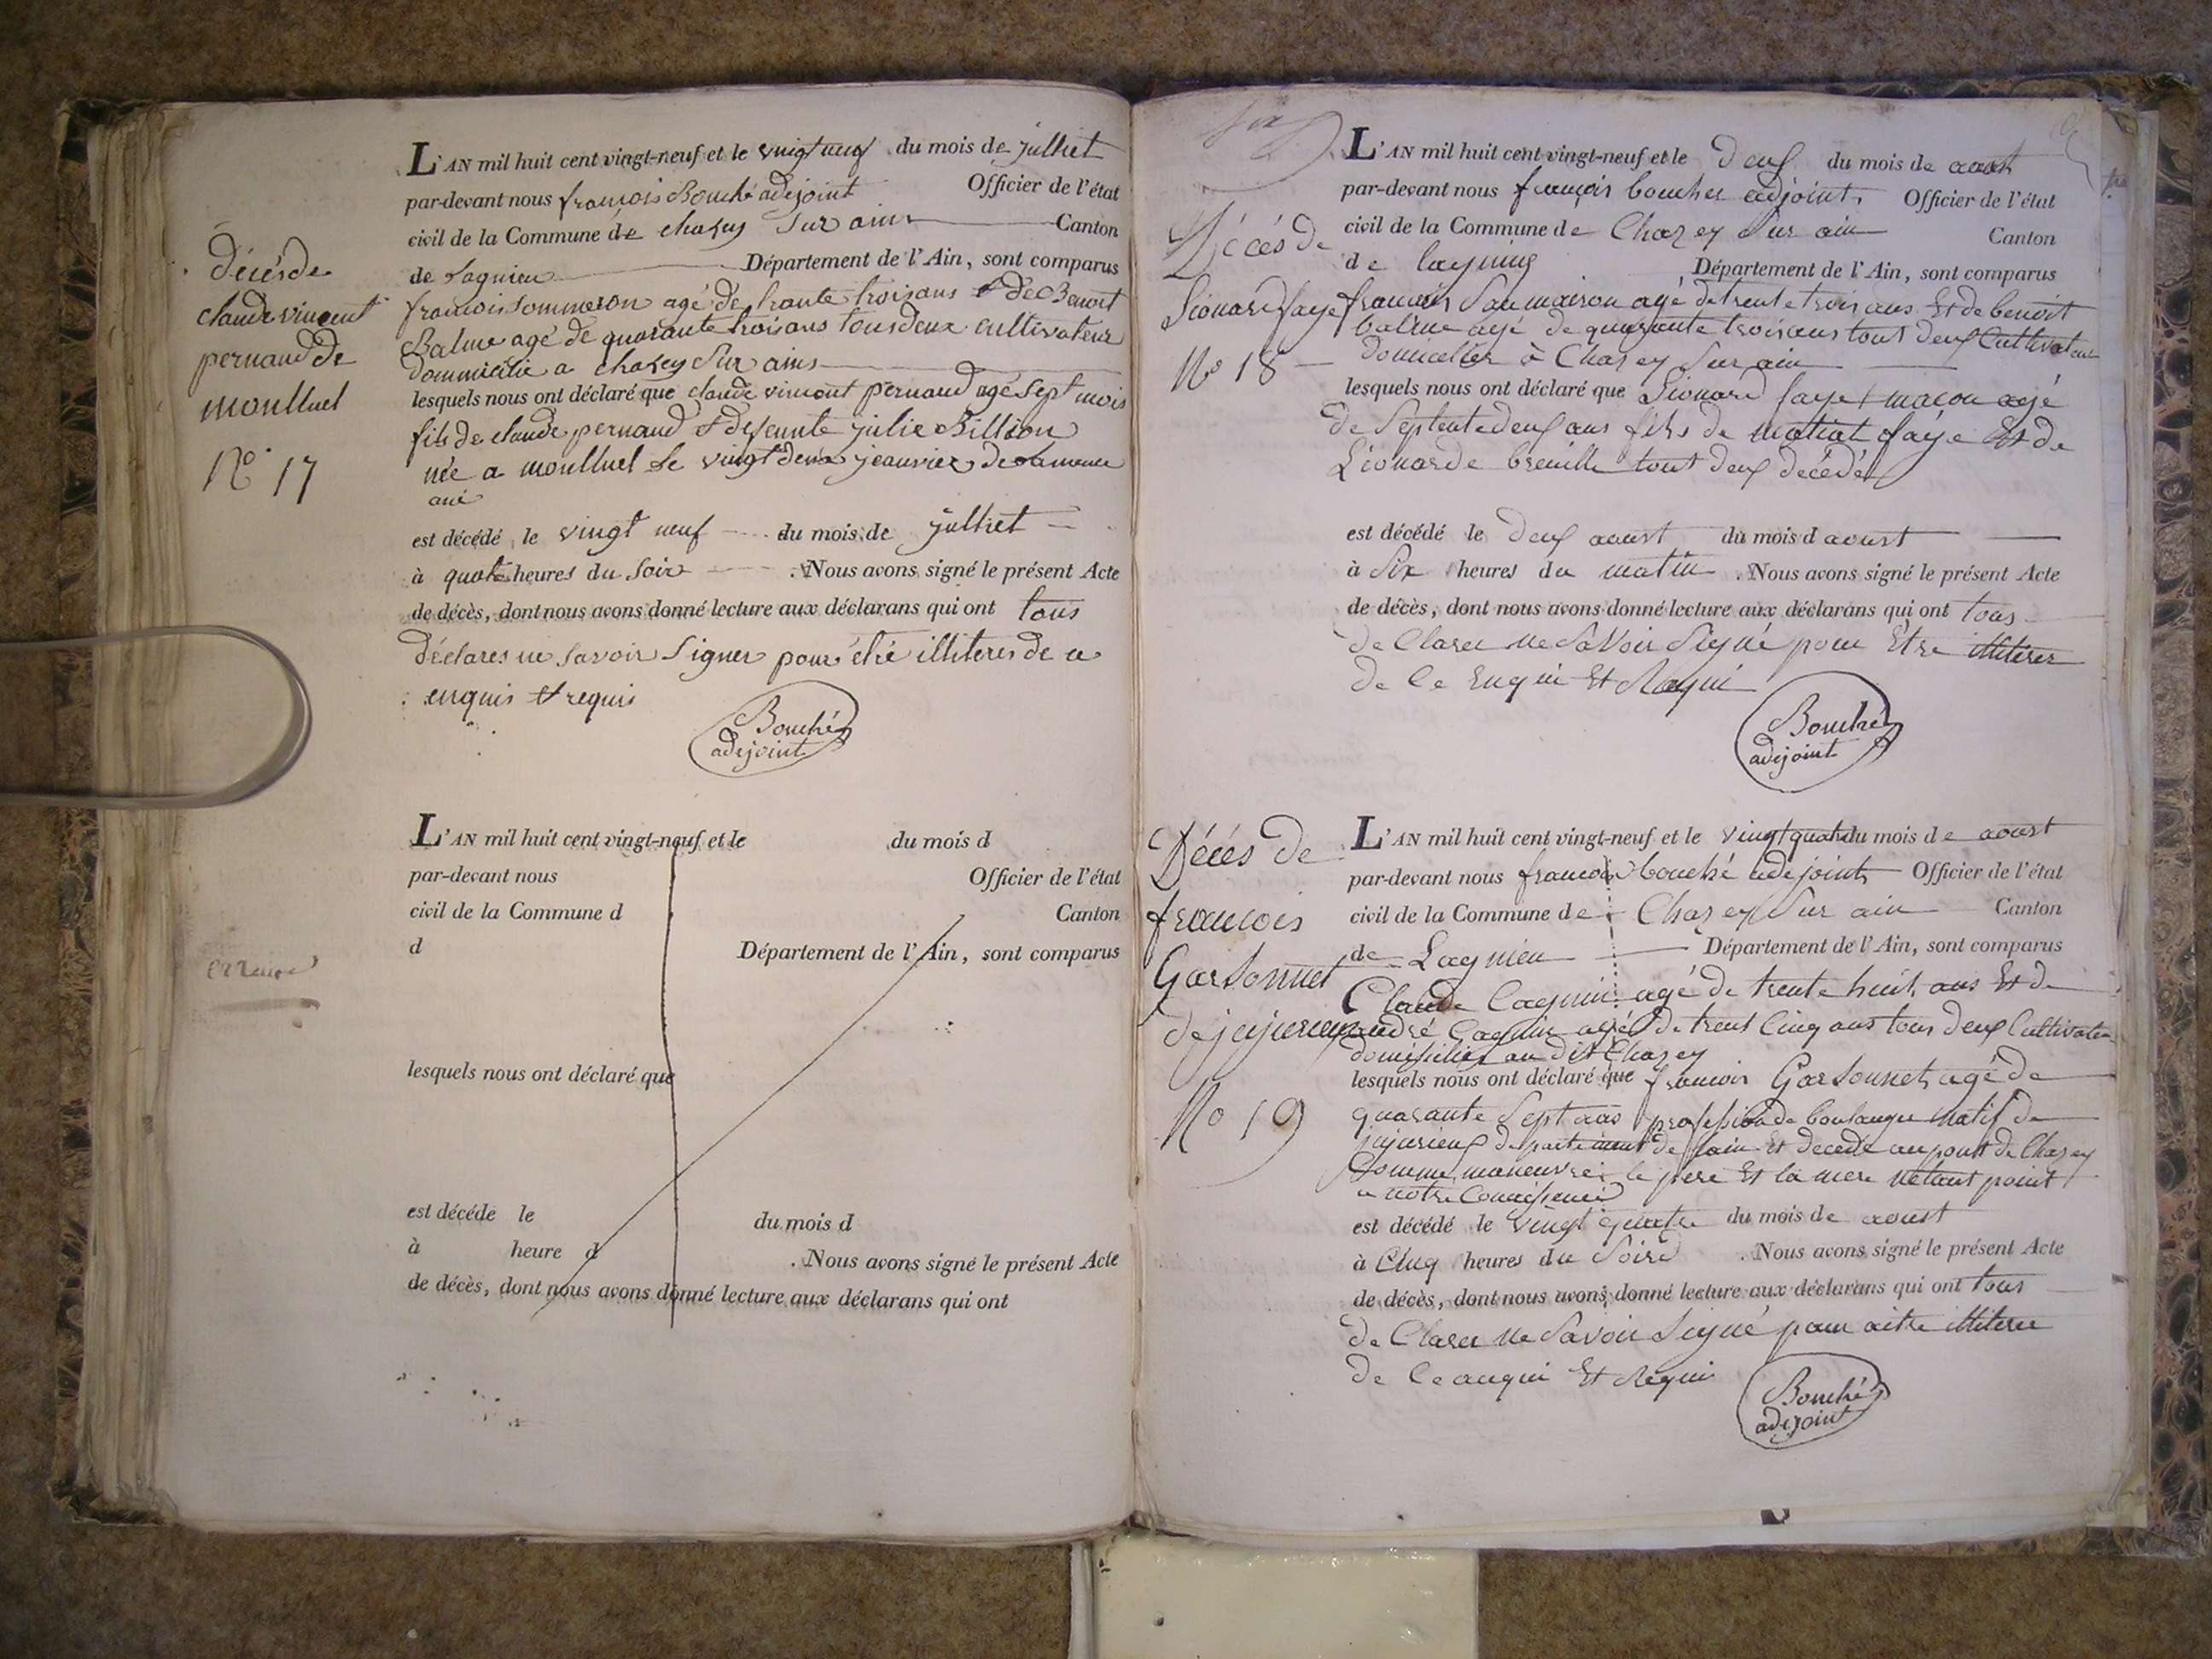 décès de
claude vincent
pernaud de
monlluel
N° 17
L'AN mil huit cent vingt-neuf et le vingt neuf du mois de julliet
par-devant nous francois Bouché adejoint Officier de l'état
civil de la Commune de chasey sur ains Canton
de Lagnieu Département de l'Ain, sont comparus
francois sommeron agé de trante trois ans et de Benoit
Balme agé de quarante trois ans tous deux cultivateur
dommicilié a chasey sur ains
lesquels nous ont déclaré que claude vincent pernaud agé sept mois
fils de claude pernaud et defeunte julie Billion
née a monlluel le vingt deux jeanvier de
est décédé le vingt neuf du mois de julliet
à quatre heures du soir . Nous avons signé le présent Acte
de décès, dont nous avons donné lecture aux déclarans qui ont tous
déclares ne savoir signer pour étre illiteres de ce
enquis et requis
Bouché
adejoint
L'AN mil huit cent vingt-neuf et le du mois d
par-devant nous Officier de l'état
civil de la Commune d Canton
d Département de l'Ain, sont comparus
lesquels nous ont déclaré que
est décédé le du mois d
à heure d . Nous avons signé le présent Acte
de décès, dont nous avons donné lecture aux déclarans qui ont
Décés de
Lionard faye
No 18
L'AN mil huit cent vingt-neuf et le deux du mois de aoust
par-devant nous françois boucher adjoint Officier de l'état
civil de la Commune de Chazey sur ain Canton
de Département de l'Ain, sont comparus
francois Saumairon agé de trente trois ans Et de benoit
balme agé de quarante trois ans tout deux Cultivateur
à Chazey sur ain
lesquels nous ont déclaré que Lionard faye macon agé
de Septente deux ans fils de faye Et de
Lionarde breuille tout deux décédé
est décédé le deux aoust du mois d aoust
à Six heures du matin . Nous avons signé le présent Acte
de décès, dont nous avons donné lecture aux déclarans qui ont tous
de Clarer ne Savoir Signé pour Etre illiterer
de Ce Enqui Et Requi
Bouché
adejoint
Décés de
francois
Garsonnet
de jujurieux
No 19
L'AN mil huit cent vingt-neuf et le vingt quatre du mois de aoust
par-devant nous francois bouché adejoint Officier de l'état
civil de la Commune de Chazey Sur ain Canton
de Lagnieu Département de l'Ain, sont comparus
Claude Cagnin agé de trente huit ans Et de
andré Cagnin agé de trent Cinq ans tous deux Cultivateur
au dit Chazey
lesquels nous ont déclaré que francois Garsonnet agé de
quarante Sept ans profession de boulanger natif de
jujurieux departement de lain Et decede au pont de Chazey
Comme maneuvre le pere Et la mere netant point
a notre
est décédé le vingt quatre du mois de aoust
à Cinq heures du Soire . Nous avons signé le présent Acte
de décès, dont nous avons donné lecture aux déclarans qui ont tous
de Clarer ne Savoir Signé pour aitre illiterer
de Ce anqui Et Requi
Bouché
adejoint